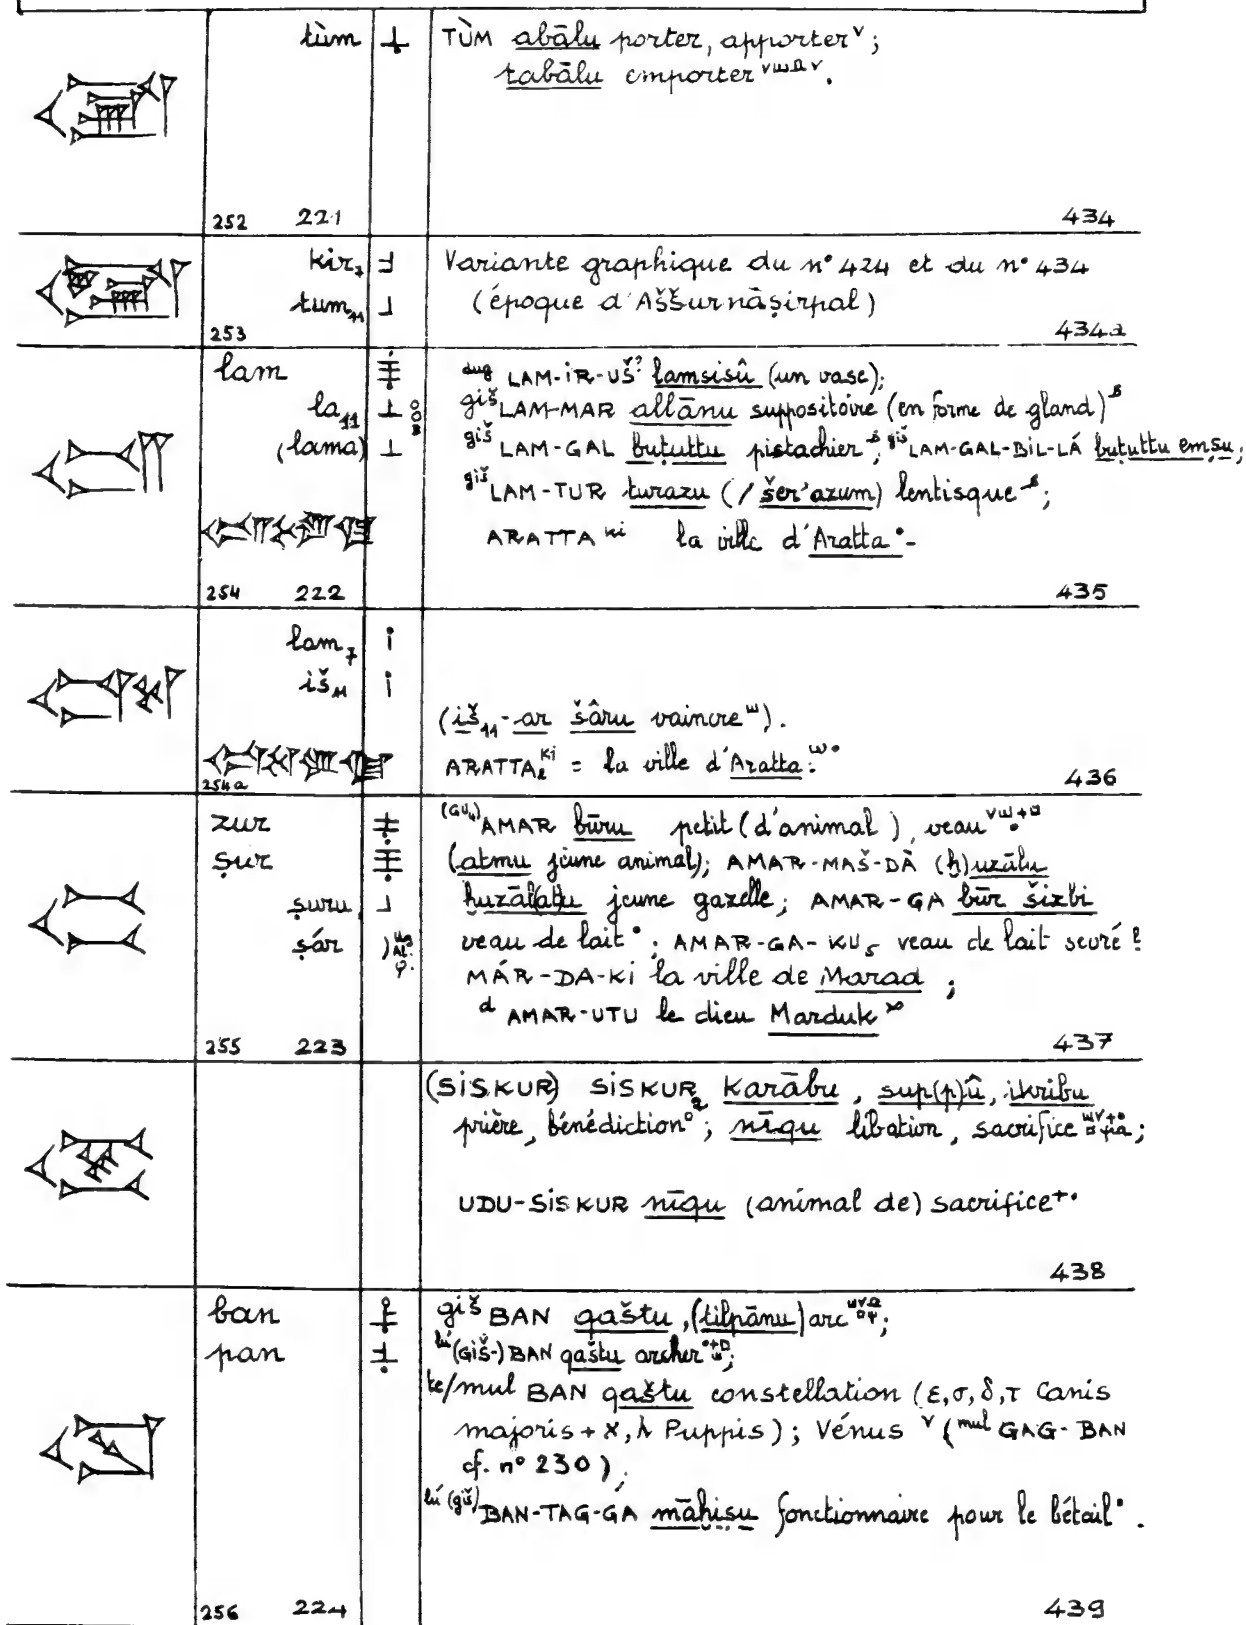 tùm TÙM abālu porter, apporter ᵛ;
tabālu emporter
252 221 434
kir₇ Variante graphique du n° 424 et du n° 434
tum₁₁ (époque d'Aššurnāṣirpal)
253 434a
lam dug LAM-IR-UŠ? lamsisû (un vase);
la₁₁ giš LAM-MAR allānu suppositoire (en forme de gland)
(lama) giš LAM-GAL buṭuttu pistachier; giš LAM-GAL-BIL-LÁ buṭuttu emṣu;
giš LAM-TUR turazu (/ šer'azum) lentisque;
ARATTA ki la ville d'Aratta
254 222 435
lam₇
iš₁₁
(iš₁₁-ar šâru vaincre).
ARATTA₂ ki = la ville d'Aratta
254a 436
zur (GU₄) AMAR būru petit (d'animal), veau
ṣur (atmu jeune animal); AMAR-MAŠ-DÀ (ḫ)uzālu
ṣuru ḫuzāl(at)u jeune gazelle; AMAR-GA būr šizbi
ṣár veau de lait; AMAR-GA-KU₅ veau de lait sevré
MÁR-DA-KI la ville de Marad;
d AMAR-UTU le dieu Marduk
255 223 437
(SISKUR) SISKUR₂ karābu, sup(p)û, ikribu
prière, bénédiction; nīqu libation, sacrifice;
UDU-SISKUR nīqu (animal de) sacrifice
438
ban giš BAN qaštu, (tilpānu) arc;
pan lú (GIŠ-) BAN qaštu archer;
te/mul BAN qaštu constellation (ε, σ, δ, τ Canis
majoris + ϰ, λ Puppis); Vénus ᵛ (mul GAG-BAN
cf. n° 230);
lú (giš) BAN-TAG-GA māḫiṣu fonctionnaire pour le bétail.
256 224 439